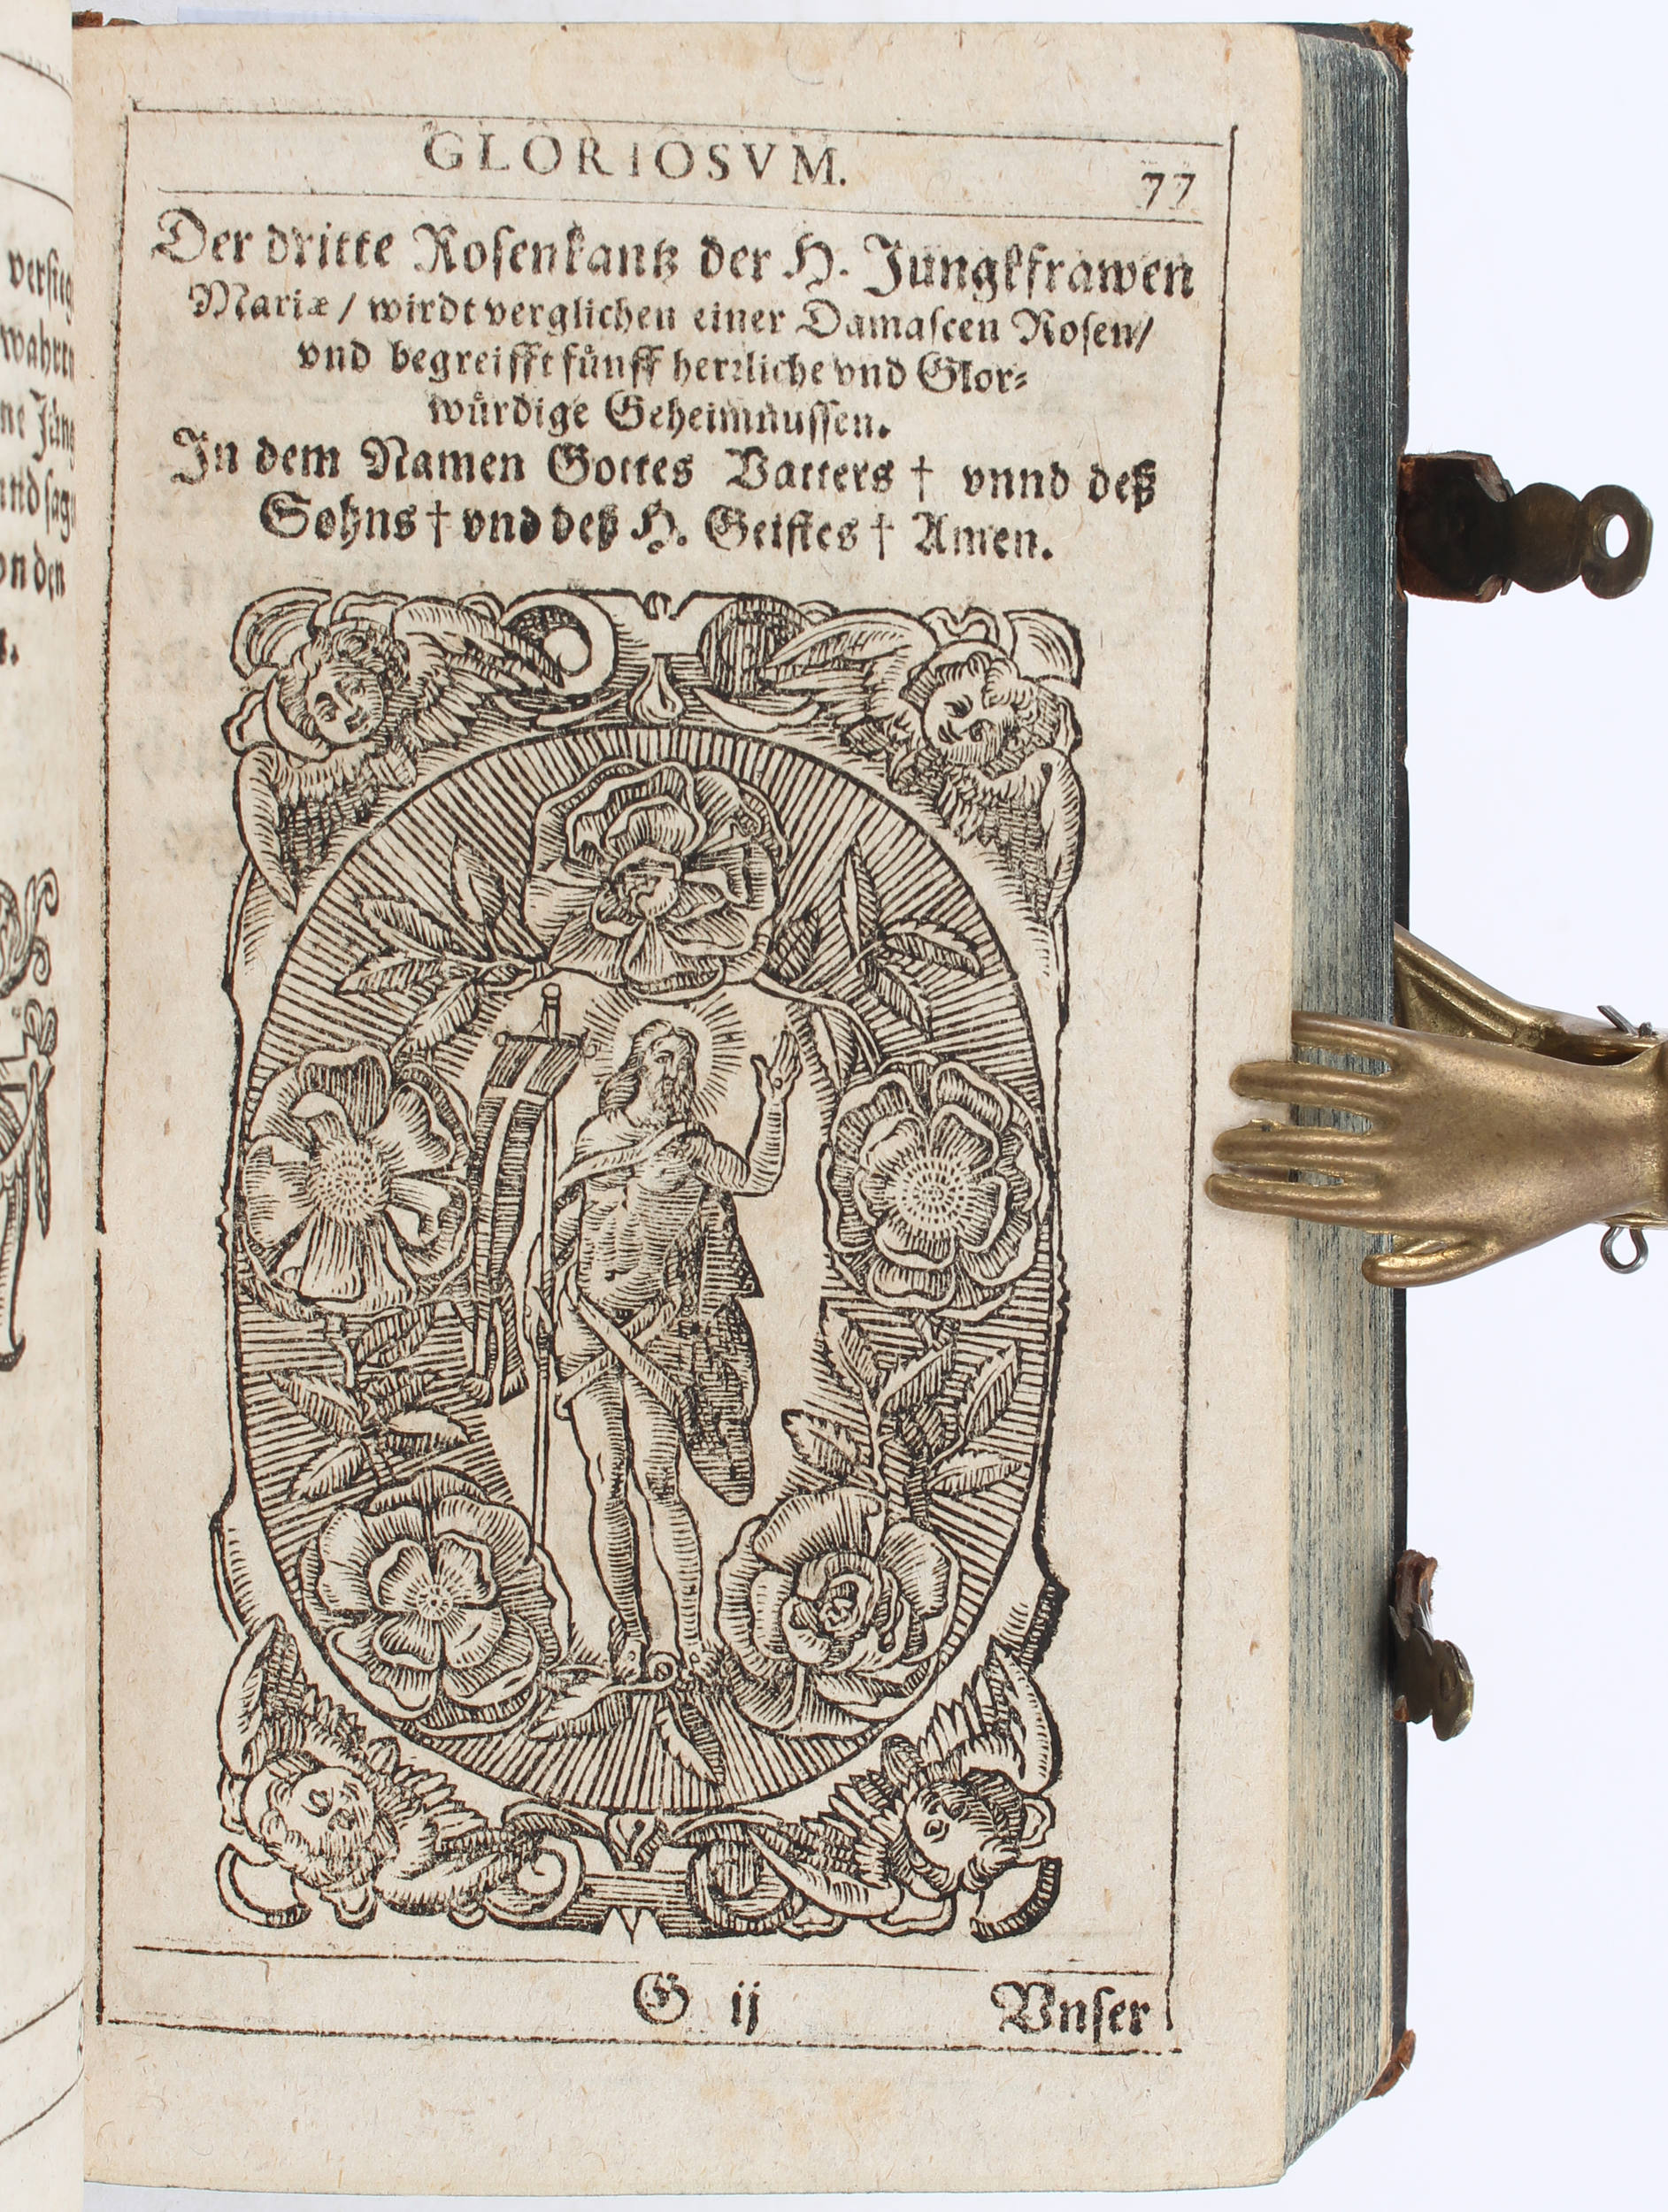 GLORIOSVM.
77
Der dritte Rosenkantz der H. Jungkfrawen
Mariæ / wirdt verglichen einer Damascen Rosen /
vnd begreifft fünff herrliche vnd Glor-
würdige Geheimnussen.
In dem Namen Gottes Vatters † vnnd deß
Sohns † vnd deß H. Geistes † Amen.
G ij
Vnser